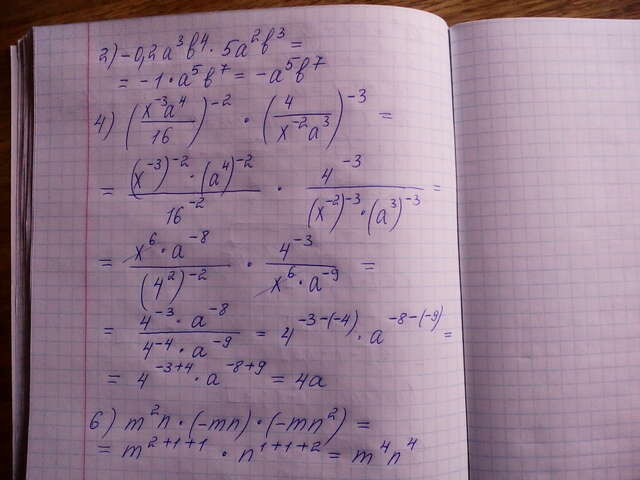 2) -0,2a³b⁴ · 5a²b³ =
= -1 · a⁵b⁷ = -a⁵b⁷
4) (x⁻³a⁴/16)⁻² · (4/x⁻²a³)⁻³ =
= (x⁻³)⁻² · (a⁴)⁻²/16⁻² · 4⁻³/(x⁻²)⁻³ · (a³)⁻³ =
= x⁶ · a⁻⁸/(4²)⁻² · 4⁻³/x⁶ · a⁻⁹ =
= 4⁻³ · a⁻⁸/4⁻⁴ · a⁻⁹ = 4^-3-(-4) · a^-8-(-9) =
= 4⁻³⁺⁴ · a⁻⁸⁺⁹ = 4a
6) m²n · (-mn) · (-mn²) =
= m²⁺¹⁺¹ · n¹⁺¹⁺² = m⁴n⁴